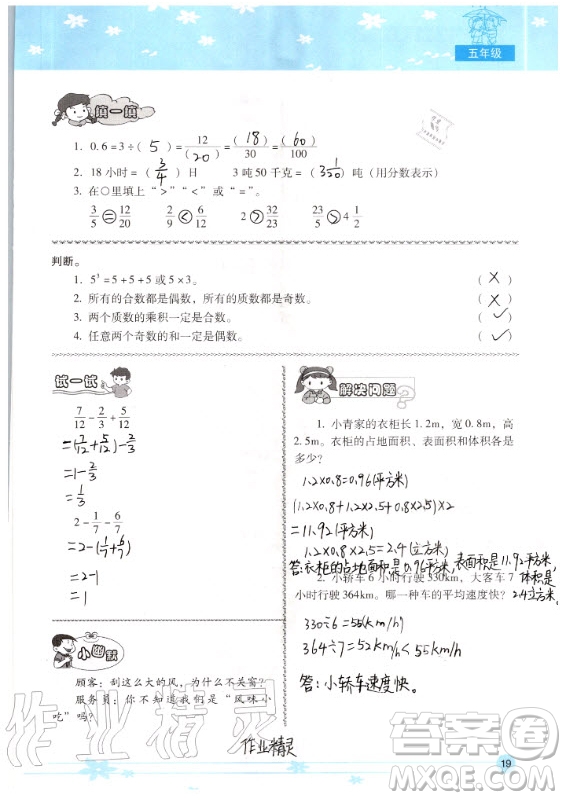 五年级
填一填
1. 0.6=3÷( 5 )=12/(20)=(18)/30=(60)/100
2. 18小时=( 3/4 )日 3吨50千克=( 3 1/20 )吨(用分数表示)
3. 在○里填上“>”“<”或“=”。
3/5 = 12/20 2/9 < 6/12 2 > 32/23 23/5 > 4 1/2
判断。
1. 5³=5+5+5或5×3。 (×)
2. 所有的合数都是偶数，所有的质数都是奇数。 (×)
3. 两个质数的乘积一定是合数。 (✓)
4. 任意两个奇数的和一定是偶数。 (✓)
试一试
7/12-2/3+5/12
=(7/12+5/12)-2/3
=1-2/3
=1/3
2-1/7-6/7
=2-(1/7+6/7)
=2-1
=1
小幽默
顾客：刮这么大的风，为什么不关窗？
服务员：你不知道我们是“风味小
吃”吗？
解决问题
1. 小青家的衣柜长1.2m，宽0.8m，高
2.5m。衣柜的占地面积、表面积和体积各是
多少？
1.2×0.8=0.96(平方米)
(1.2×0.8+1.2×2.5+0.8×2.5)×2
=11.92(平方米)
1.2×0.8×2.5=2.4(立方米)
答:衣柜的占地面积是0.96平方米,表面积是11.92平方米
体积是
2.4立方米。
2. 小轿车6小时行驶330km，大客车7
小时行驶364km。哪一种车的平均速度快？
330÷6=55(km/h)
364÷7=52km/h<55km/h
答:小轿车速度快。
作业精灵
作业精灵
答案圈
MXQE.COM
19